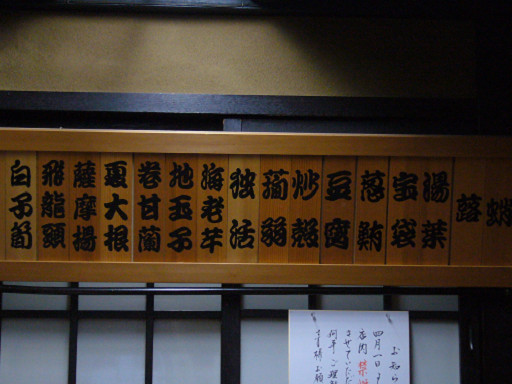 蛸
蕗
湯葉
宝袋
葱鮪
豆腐
炒殻
蒟蒻
独活
海老芋
地玉子
巻甘藍
夏大根
薩摩揚
飛龍頭
白子筍
お知ら
四月一日よ
店内禁
させていただ
何卒ご理